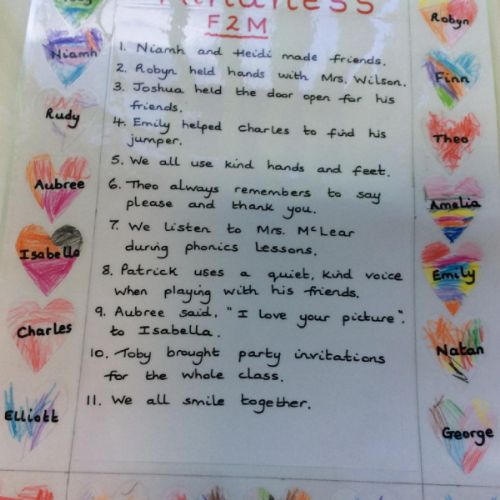 Kindness
F2M
1. Niamh and Heidi made friends.
2. Robyn held hands with Mrs. Wilson.
3. Joshua held the door open for his
friends.
4. Emily helped Charles to find his
jumper.
5. We all use kind hands and feet.
6. Theo always remembers to say
please and thank you.
7. We listen to Mrs. McLear
during phonics lessons.
8. Patrick uses a quiet, kind voice
when playing with his friends.
9. Aubree said, "I love your picture".
to Isabella.
10. Toby brought party invitations
for the whole class.
11. We all smile together.
Niamh
Rudy
Aubree
Isabella
Charles
Elliott
Robyn
Finn
Theo
Amelia
Emily
Natan
George